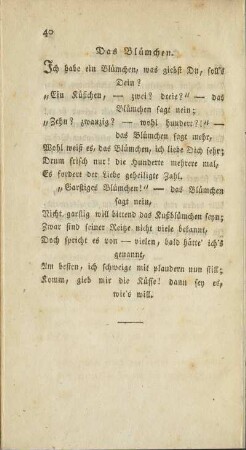 40
Das Blümchen.
Ich habe ein Blümchen, was giebst Du, soll's
Dein?
„Ein Küßchen, — zwei? dreie?“ — das
Blümchen sagt nein;
„Zehn? zwanzig? — wohl hundert?!“ —
das Blümchen sagt mehr,
Wohl weiß es, das Blümchen, ich liebe Dich sehr;
Drum frisch nur! die Hunderte mehrere mal,
Es fordert der Liebe geheiligte Zahl.
„Garstiges Blümchen!“ — das Blümchen
sagt nein,
Nicht garstig will bittend das Kußblümchen seyn;
Zwar sind seiner Reize nicht viele bekannt,
Doch spricht es von — vielen, bald hätte ich's
genannt,
Am besten, ich schweige mit plaudern nun still;
Komm, gieb mir die Küsse! dann sey es,
wie's will.